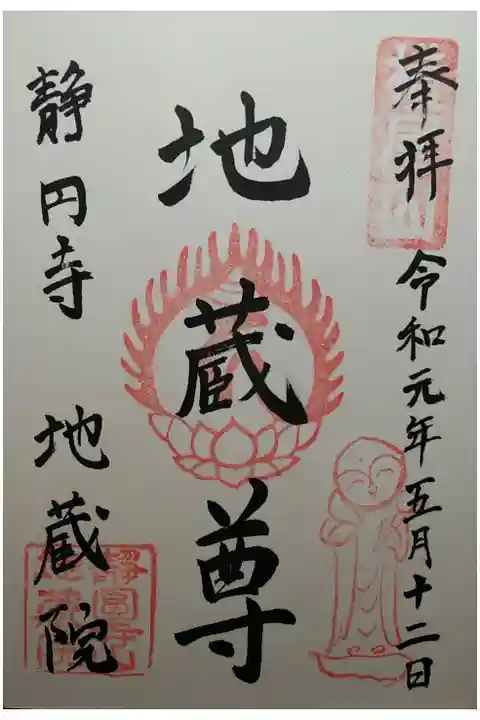 奉拝 令和元年五月十二日
地蔵尊
静円寺 地蔵院